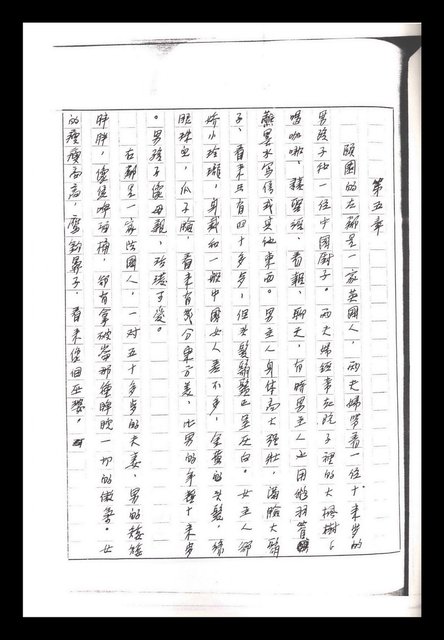 第五章
頤園的左鄰是一家英國人，兩夫婦帶着一位十來歲的
男孩子和一位中國廚子。兩夫婦經常在院子裡的大楓樹下
喝咖啡、聽音樂、看報、聊天，有時男主人也用鵝羽管
蘸墨水寫信或其他東西。男主人身体高大强壯，滿臉大鬍
子，看来只有四十多歲，但头髮鬍鬚已呈灰白。女主人卻
嬌小玲瓏，身裁和一般中國女人差不多，金黃的头髮，綠
眼珠兒，瓜子臉，看来有幾分東方美，比男的年輕十来歲
。男孩子像母親，玲瓏可愛。
右鄰是一家法國人，一对五十多歲的夫妻，男的矮矮
胖胖，像隻啤酒桶，卻有拿破崙那種睥睨一切的傲氣。女
的瘦瘦高高，鷹鉤鼻子，看来像個巫婆。